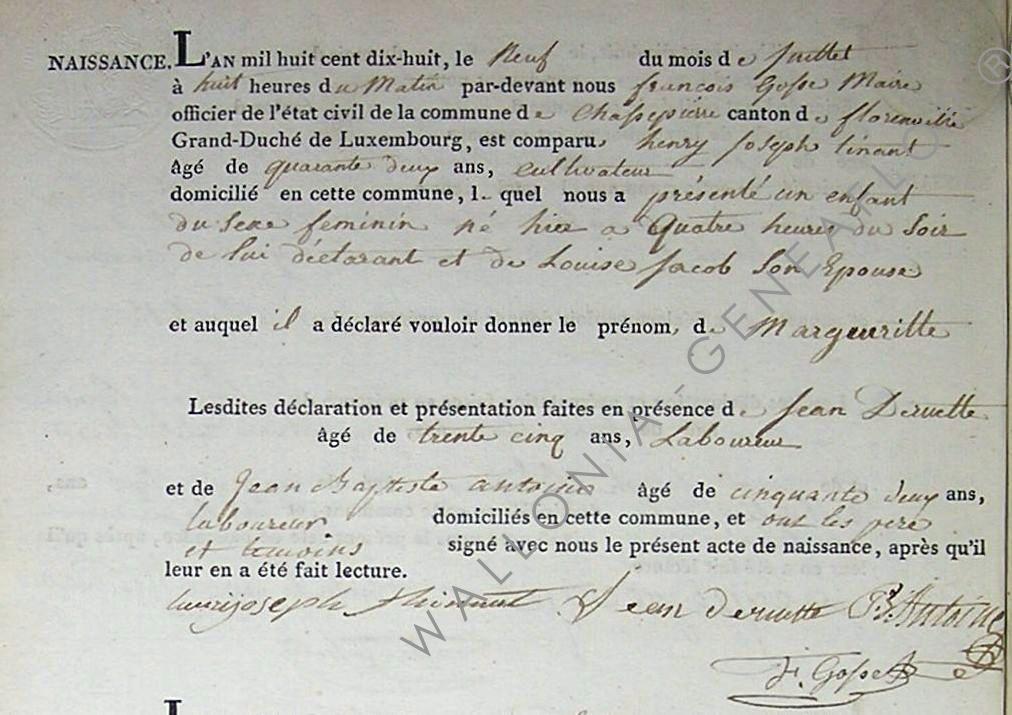 NAISSANCE. L'AN mil huit cent dix-huit, le Neuf du mois de Juillet
à huit heures du Matin par-devant nous françois Gosse Maire
officier de l'état civil de la commune de Chassepierre canton de florenville
Grand-Duché de Luxembourg, est comparu henry Joseph tinant
âgé de quarante deux ans, cultivateur
domicilié en cette commune, l- quel nous a présenté un enfant
du sexe feminin né hier a Quatre heures du Soir
de lui déclarant et de Louise Jacob Son Epouse
et auquel il a déclaré vouloir donner le prénom, de Margueritte
Lesdites déclaration et présentation faites en présence de Jean Deruette
âgé de trente cinq ans, Laboureur
et de Jean Baptiste antoine âgé de cinquante deux ans,
laboureur domiciliés en cette commune, et ont les pere
et temoins signé avec nous le présent acte de naissance, après qu'il
leur en a été fait lecture.
henrijoseph thinant Jean deruette B. Antoine
F. Gosse
WALLONIA GENEALO
®